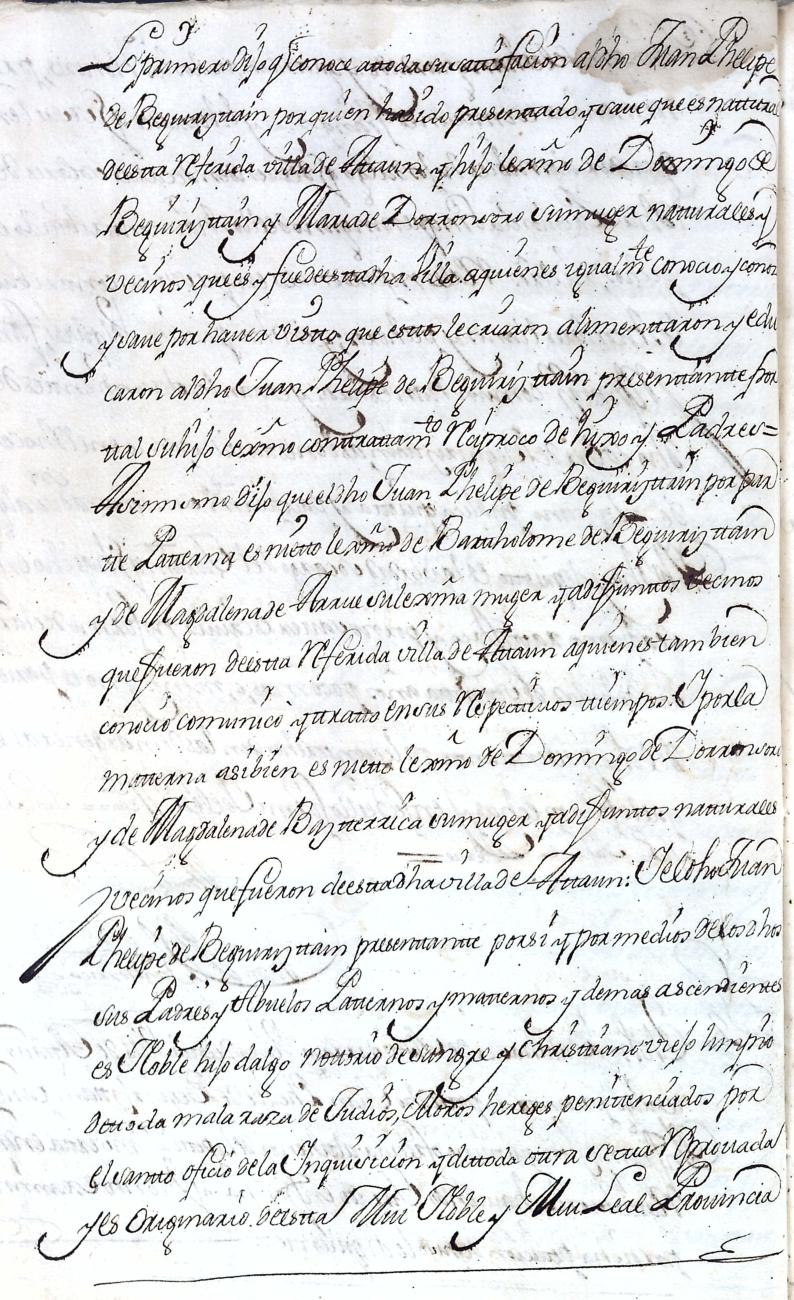 Lo primero dijo q conoce attoda su sattisfacion al dho Juan Phelipe
de Beguiryttain por quien ha sido presenttado y save que es nattural
de estta referida villa de Attaun y hijo lexmo de Domingo de
Beguiryttain y Maria de Dorronsoro su muger naturales y
vecinos que es y fue de estta dha Villa. a quienes igualmte conocio y conoze
y save por haver visto que esttos le criaron alimenttaron y edu
caron al dho Juan Phelipe de Beguiryttain presenttantte por
ttal su hijo lexmo con trattamto reciproco de hixo y Padres=
Asimismo dijo que el dho Juan Phelipe de Beguiryttain por par
tte Patterna es nietto lexmo de Bartholome de Beguiryttain
y de Magdalena de Arrue su lexma muger ya difunttos vecinos
que fueron de estta referida villa de Attaun a quienes tambien
conocio comunico y tratto en sus respecttivos ttiempos: Y por la
matterna asi bien es nietto lexmo de Domingo de Dorronsoro
y de Magdalena de Baytterrica su muger ya difunttos natturales
y vecinos que fueron de estta dha villa de Attaun: Y el dho Juan
Phelipe de Beguiryttain presenttantte por si y por medios de los dhos
sus Padres y Abuelos Patternos y matternos y demas ascendientes
es Noble hijo dalgo nottorio de sangre y christtiano viejo limpio
de ttoda mala raza de Judios, Moros hereges penittenciados por
el santto oficio de la Inquisicion y de ttoda otra secta reprovada
y es originario de estta Mui Noble y Mui Leal Provincia